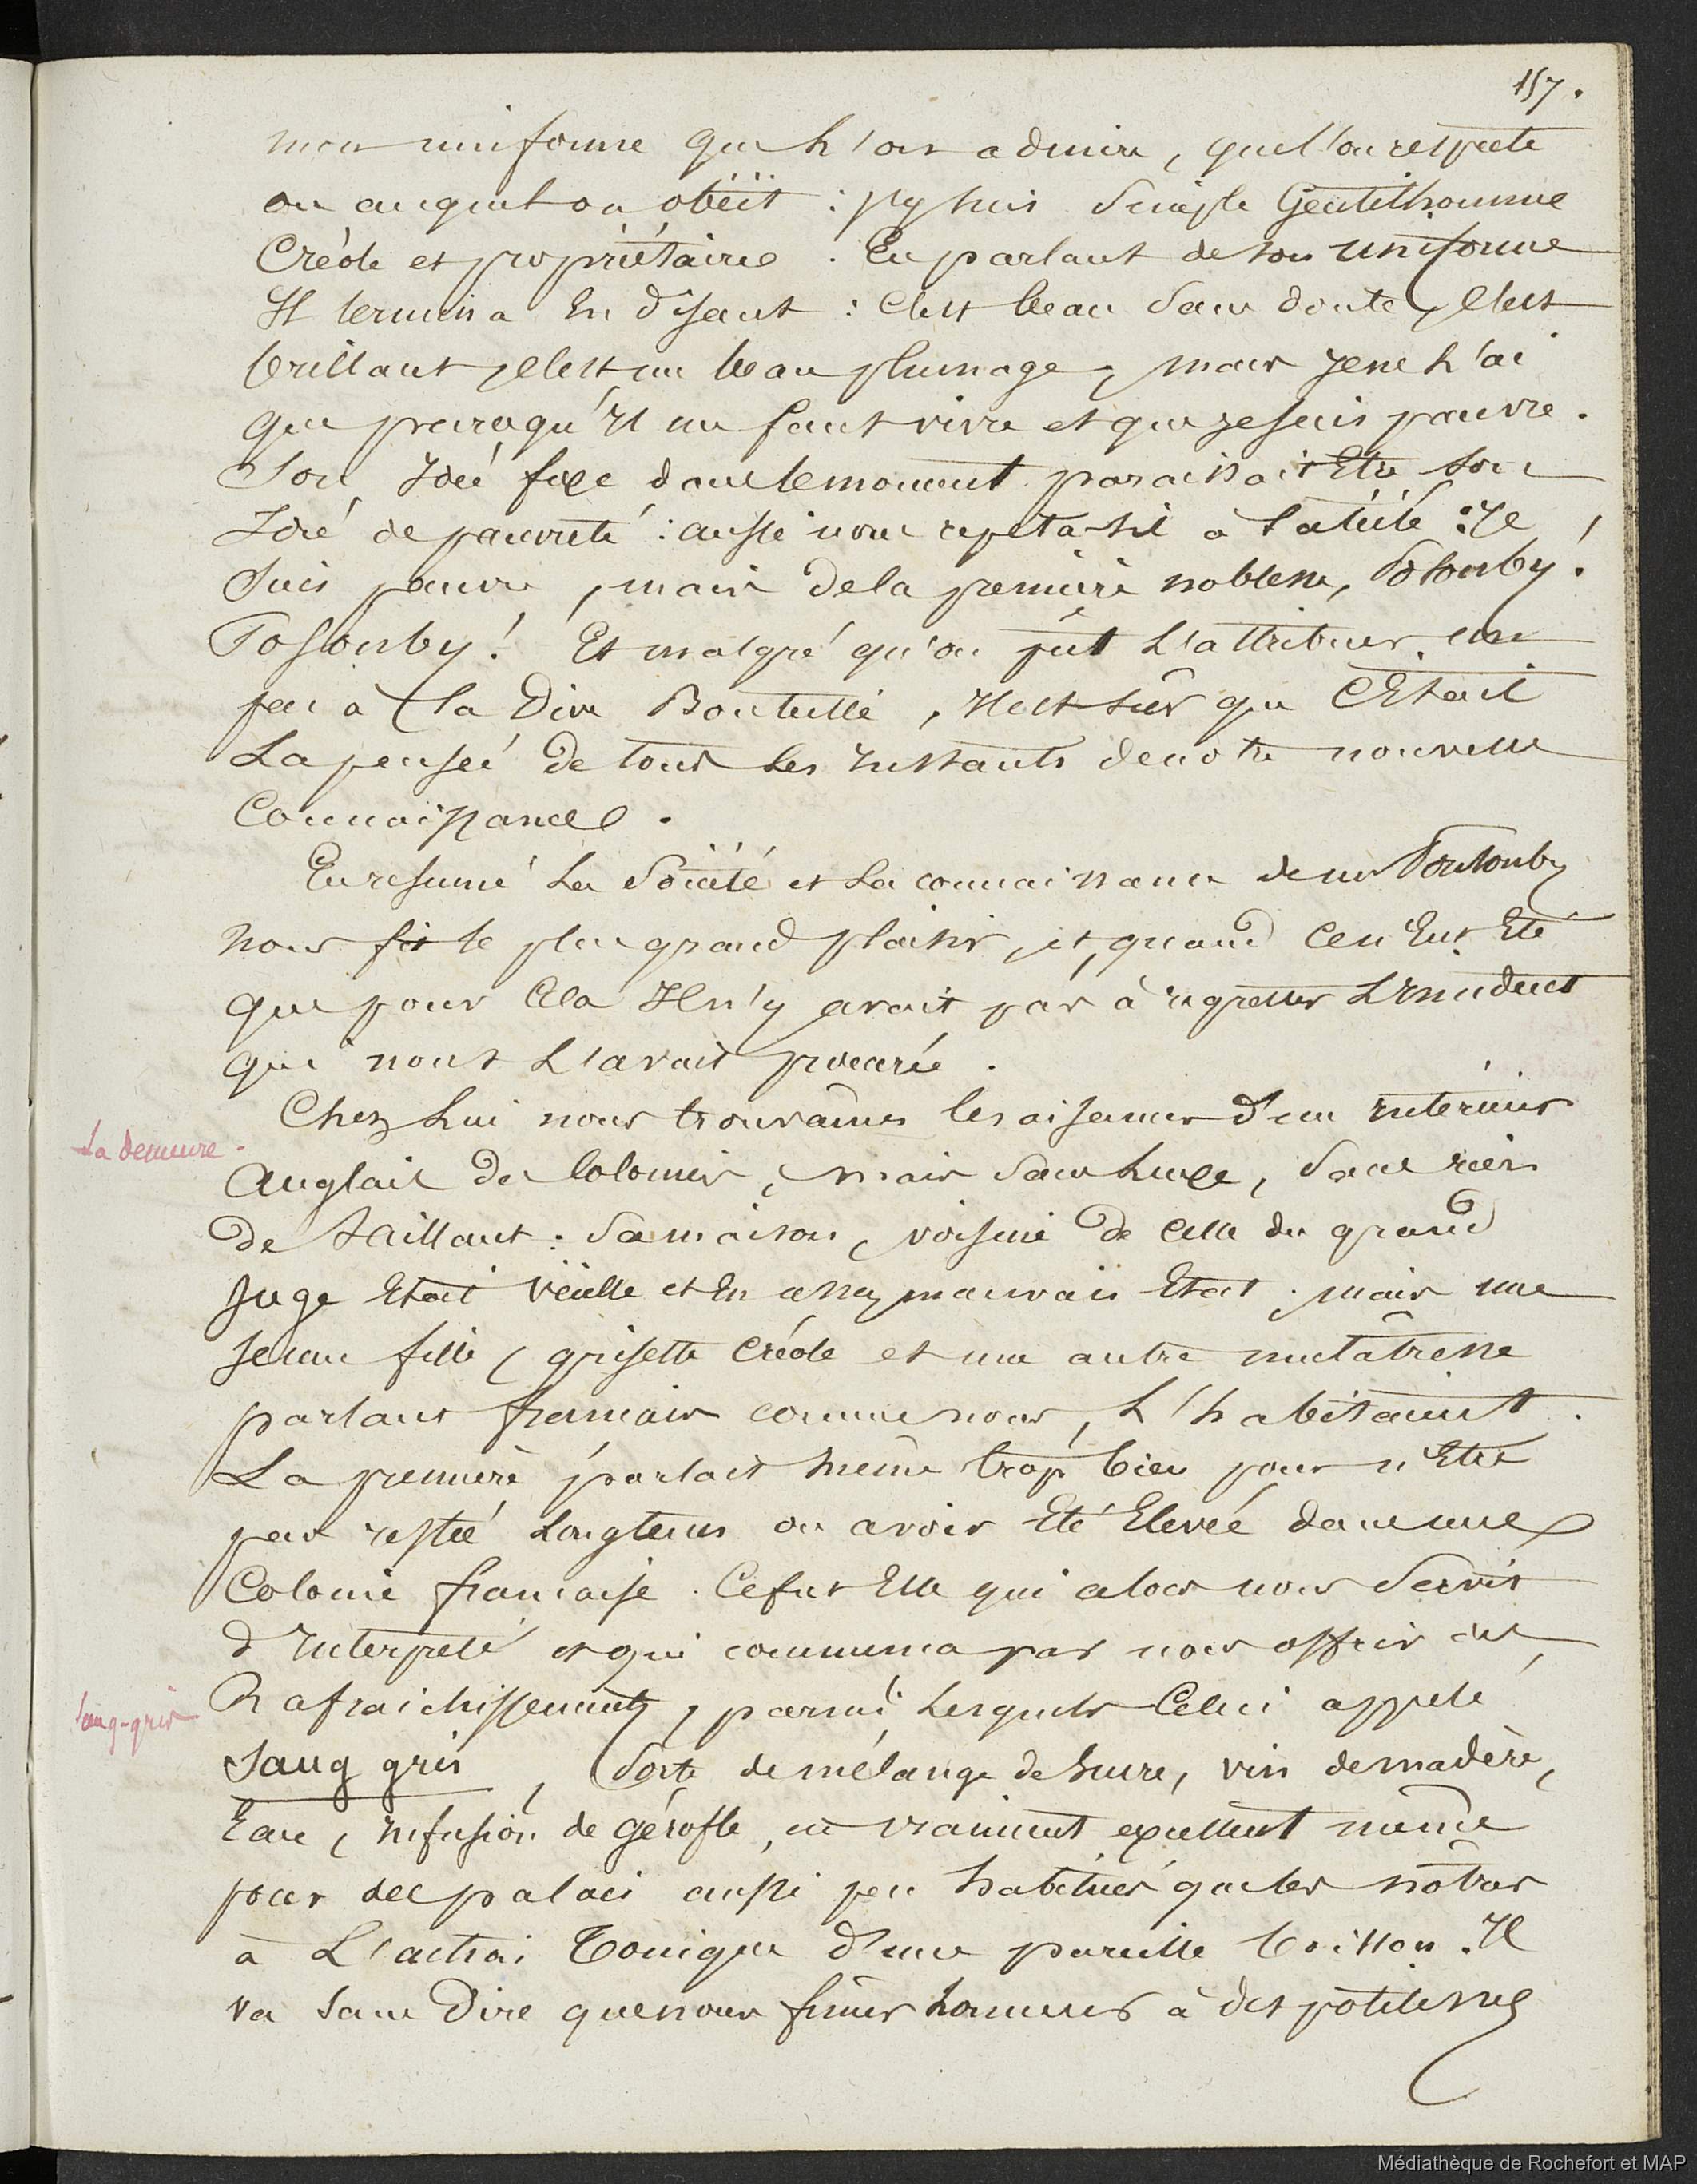 157.
mon uniforme que l'on admire, que l'on respecte
ou auquel on obéit : j'y suis simple Gentilhomme
Créole et propriétaire. En parlant de son uniforme
Il termina En disant : C'est beau sans doute, C'est
brillant, C'est un beau plumage, mais Je ne l'ai
que parcequ'Il me faut vivre et que je suis pauvre.
Son Idée fixe dans le moment paraissait Etre son
Idée de pauvreté : aussi nous repeta-t-il à satiété : Je
suis pauvre, mais de la première noblesse, Posonby!
Posonby! Et malgré qu'on put L'attribuer un
peu à La Dive Bouteille, Il est sûr que C'Etait
La pensée de tous les Instants de notre nouvelle
Connaissance.
En resumé La Société et La connaissance de mr Ponsonby
nous fit le plus grand plaisir, et, quand Ce n'Eut Eté
que pour Cela Il n'y avait pas à regretter L'Incident
qui nous L'avait procurée.
La demeure.
Chez Lui nous trouvâmes les aisances d'un Intérieur
Anglais des Colonies, mais sans Luxe, sans rien
de saillant : sa maison, voisine de celle du grand
Juge Etait vieille et En assez mauvais Etat ; mais une
Jeune fille, grisette Créole et une autre mulâtresse
parlant français comme nous, L'habitaient.
La première parlait même trop bien pour n'Etre
pas restée Longtems ou avoir Eté Elevée dans une
Colonie française. Ce fut Elle qui alors nous servit
d'Interprète et qui commença par nous offrir des
sang-gris
Rafraichissements, parmi Lesquels Celui appelé
Sang gris, sorte de mélange de sucre, vin de madère,
Eau, Infusion de gérofle, est vraiment excellent même
pour des palais aussi peu habitués que les nôtres
à L'actrai Tonique d'une pareille boisson. Il
va sans Dire que nous fimes honneur à des politesses